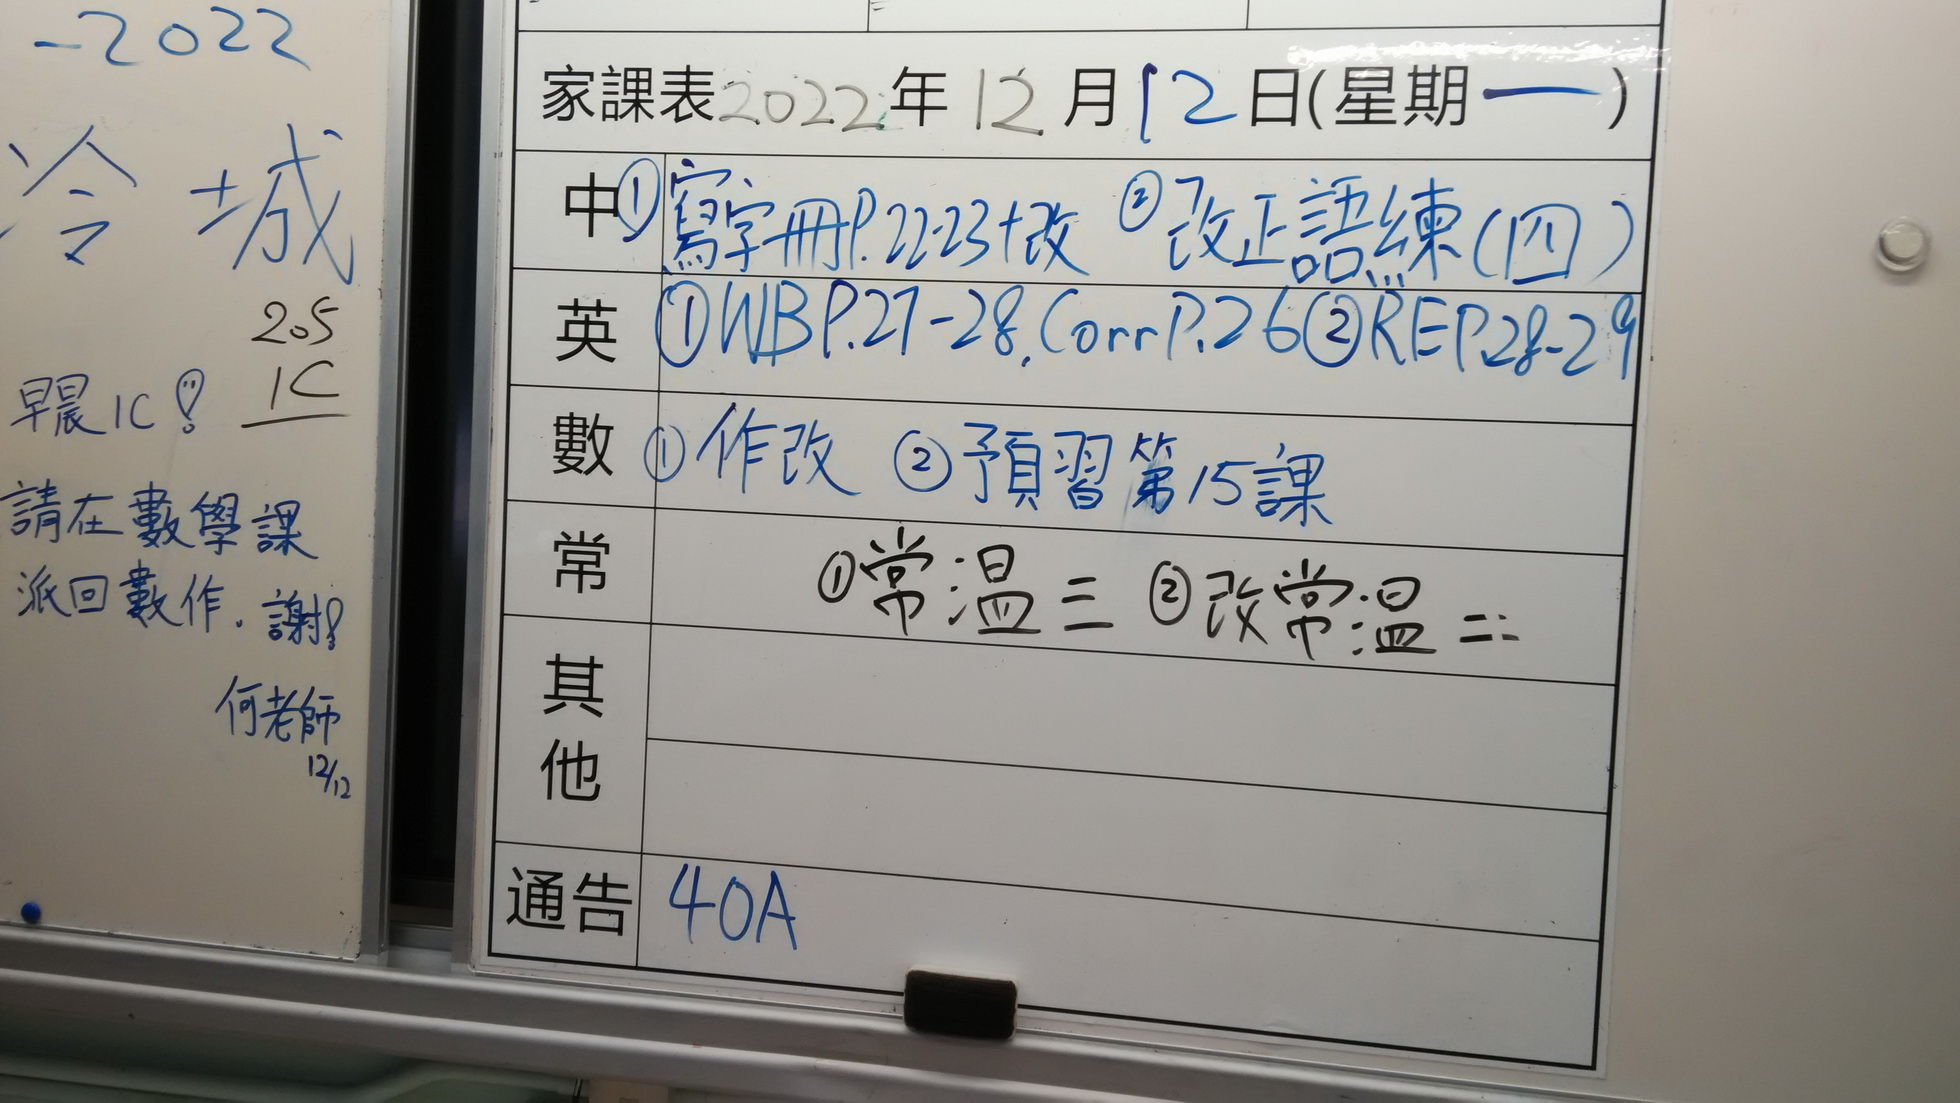 -2022
冷 城
205
1C
早晨1C!
請在數學課
派回數作.謝!
何老師
12/12
家課表2022年12月12日(星期一)
中 ①寫字冊P.22-23+改 ②改正語練(四)
英 ①WB P.27-28, Corr P.26 ②RE P.28-29
數 ①作改 ②預習第15課
常 ①常温三 ②改常温二
其他
通告 40A